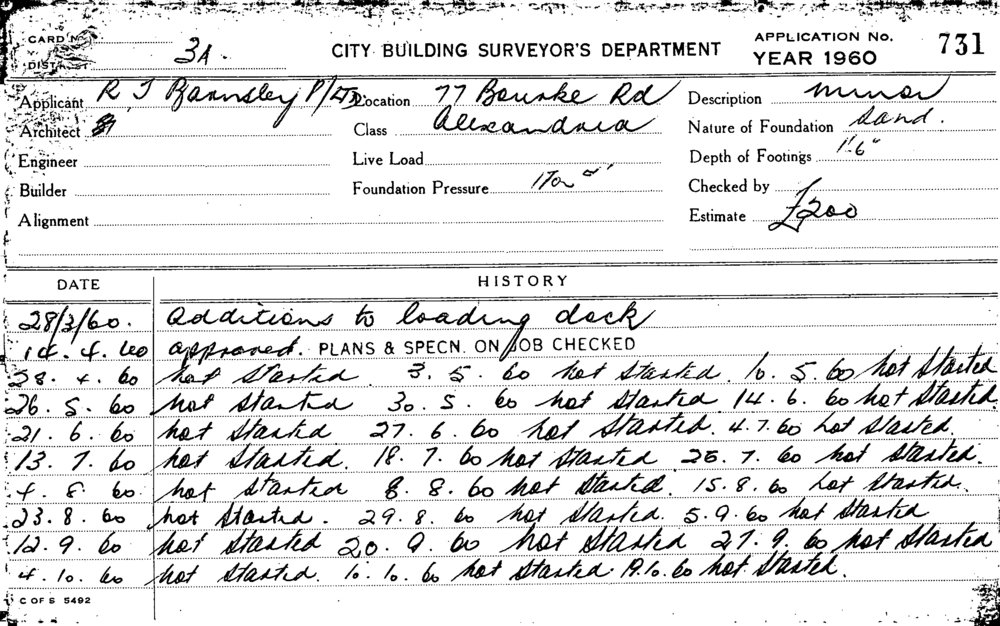 CARD No. 3A CITY BUILDING SURVEYOR'S DEPARTMENT APPLICATION No. 731
DIST. YEAR 1960
Applicant R J Barnsley P/LTD. Location 77 Bourke Rd Description minor
Architect Class Alexandria Nature of Foundation Sand.
Engineer Live Load Depth of Footings 1'.6"
Builder Foundation Pressure 1 Ton Checked by
Alignment Estimate £200
DATE HISTORY
28/3/60. additions to loading dock
14. 4. 60 approved. PLANS & SPECN. ON JOB CHECKED
28. 4. 60 not started 3. 5. 60 not started. 10. 5. 60 not started
26. 5. 60 not started 30. 5. 60 not started 14. 6. 60 not started.
21. 6. 60 not started 27. 6. 60 not started. 4.7.60 not started.
13. 7. 60 not started. 18. 7. 60 not started 25. 7. 60 not started.
4. 8. 60 not started 8. 8. 60 not started. 15.8. 60 not started.
23.8. 60 not started. 29. 8. 60 not started. 5.9.60 not started
12. 9. 60 not started 20. 9. 60 not started 27. 9. 60 not started
4. 10. 60 not started. 10. 10. 60 not started. 19.10.60 not started.
C OF S 5492